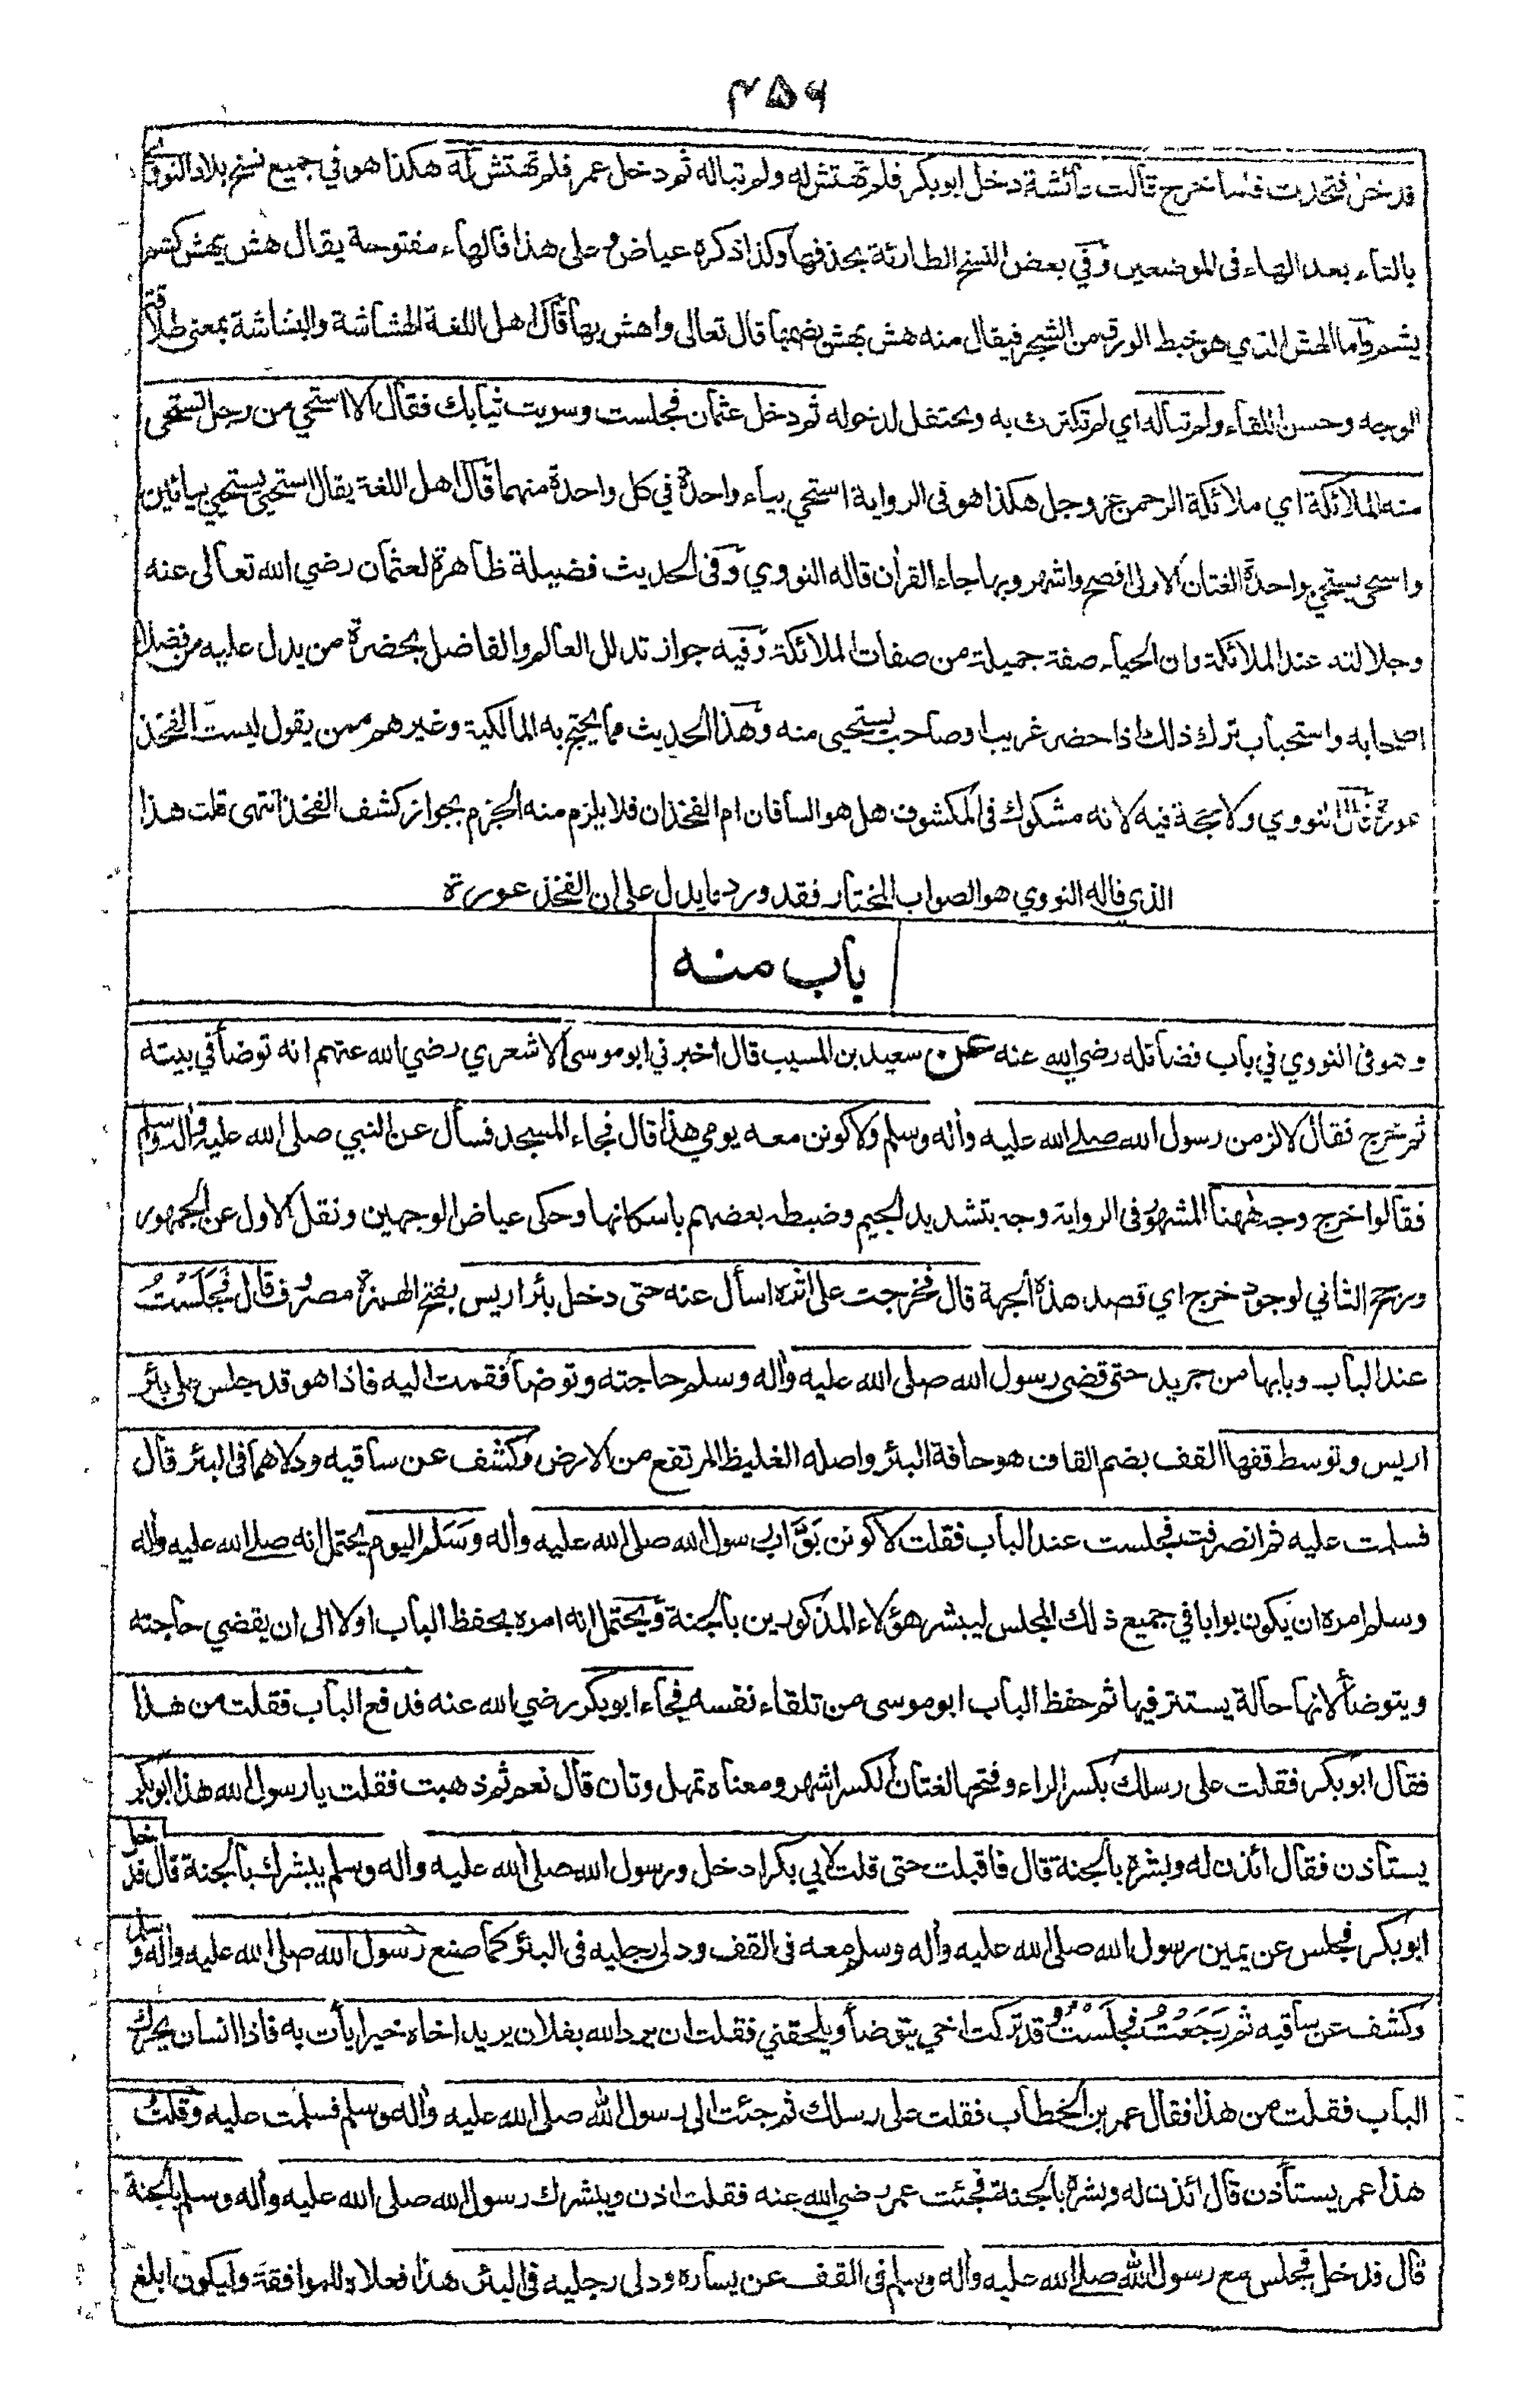 ۴۵۶
فدخل فتحدث فلما خرج قالت عائشة دخل ابوبكر فلم تهتش له ولم تباله ثم دخل عمر فلم تهتش له هكذا هو في جميع نسخ بلاد النووي
بالتاء بعد الهاء فى الموضعين وفي بعض النسخ الطارئة بحذفها وكذا ذكره عياض وعلى هذا فالهاء مفتوحة يقال هش يهش كشم
يشم واما الهش الذي هو خبط الورق من الشجر فيقال منه هش يهش بضمها قال تعالى واهش بها قال اهل اللغة الهشاشة والبشاشة بمعنى طلاقة
الوجه وحسن اللقاء ولم تباله اي لم تكترث به وتحتفل لدخوله ثم دخل عثمان فجلست وسويت ثيابك فقال الا استحي من رجل تستحي
منه الملائكة اي ملائكة الرحمن عز وجل هكذا هو فى الرواية استحي بياء واحدة في كل واحدة منهما قال اهل اللغة يقال استحيى يستحيي بيائين
واستحى يستحي بواحدة لغتان الاولى افصح واشهر وبها جاء القرأن قاله النووي وفى الحديث فضيلة ظاهرة لعثمان رضي الله تعالى عنه
وجلالته عند الملائكة وان الحياء صفة جميلة من صفات الملائكة وفيه جواز تدلل العالم والفاضل بحضرة من يدل عليه من فضلاء
اصحابه واستحباب ترك ذلك اذا حضر غريب او صاحب يستحيى منه وهذا الحديث مما يحتج به المالكية وغيرهم ممن يقول ليست الفخذ
عورة قال النووي ولا حجة فيه لانه مشكوك فى المكشوف هل هو الساقان ام الفخذان فلا يلزم منه الجزم بجواز كشف الفخذ انتهى قلت هذا
الذي قاله النووي هو الصواب المختار فقد ورد ما يدل على ان الفخذ عورة
باب منه
وهو فى النووي في باب فضائله رضي الله عنه عن سعيد بن المسيب قال اخبرني ابو موسى الاشعري رضي الله عنهم انه توضأ في بيته
ثم خرج فقال لالزمن رسول الله صلى الله عليه وأله وسلم ولاكونن معه يومي هذا قال فجاء المسجد فسأل عن النبي صلى الله عليه وأله وسلم
فقالوا خرج وجه ههنا المشهور فى الرواية وجه بتشديد الجيم وضبطه بعضهم باسكانها وحكى عياض الوجهين ونقل الاول عن الجمهور
ورجح الثاني لوجود خرج اي قصد هذه الجهة قال فخرجت على اثره اسأل عنه حتى دخل بئر اريس بفتح الهمزة مصروف قال فَجَلَسْتُ
عند الباب وبابها من جريد حتى قضى رسول الله صلى الله عليه وأله وسلم حاجته وتوضأ فقمت اليه فاذا هو قد جلس على بئر
اريس وتوسط قفها القف بضم القاف هو حافة البئر واصله الغليظ المرتفع من الارض وكشف عن ساقيه ودلاهما فى البئر قال
فسلمت عليه ثم انصرفت فجلست عند الباب فقلت لاكونن بَوَّاب رسول الله صلى الله عليه وأله وَسَلم اليوم يحتمل انه صلى الله عليه وأله
وسلم امره ان يكون بوابا في جميع ذلك المجلس ليبشر هؤلاء المذكورين بالجنة ويحتمل انه امره بحفظ الباب اولا الى ان يقضي حاجته
ويتوضأ لانها حالة يستتر فيها ثم حفظ الباب ابو موسى من تلقاء نفسه فجاء ابوبكر رضي الله عنه فدفع الباب فقلت من هذا
فقال ابو بكر فقلت على رسلك بكسر الراء وفتحها لغتان الكسر اشهر ومعناه تمهل وتان قال نعم ثم ذهبت فقلت يا رسول الله هذا ابوبكر
يستاذن فقال ائذن له وبشره بالجنة قال فاقبلت حتى قلت لابي بكر ادخل ورسول الله صلى الله عليه وأله وسلم يبشرك بالجنة قال فدخل
ابوبكر فجلس عن يمين رسول الله صلى الله عليه وأله وسلم معه فى القف ودلى رجليه فى البئر كما صنع رسول الله صلى الله عليه وأله وسلم
وكشف عن ساقيه ثم رَجَعْتُ فجلَسْتُ وقد تركت اخي يتوضأ ويلحقني فقلت ان يرد الله بفلان يريد اخاه خيرا يأت به فاذا انسان يحرك
الباب فقلت من هذا فقال عمر بن الخطاب فقلت على رسلك ثم جئت الى رسول الله صلى الله عليه وأله وسلم فسلمت عليه وقلت
هذا عمر يستأذن قال ائذن له وبشره بالجنة فجئت عمر رضي الله عنه فقلت اذن ويبشرك رسول الله صلى الله عليه وأله وسلم بالجنة
قال فدخل فجلس مع رسول الله صلى الله عليه وأله وسلم فى القف عن يساره ودلى رجليه فى البئر هذا فعلاه للموافقة وليكون ابلغ